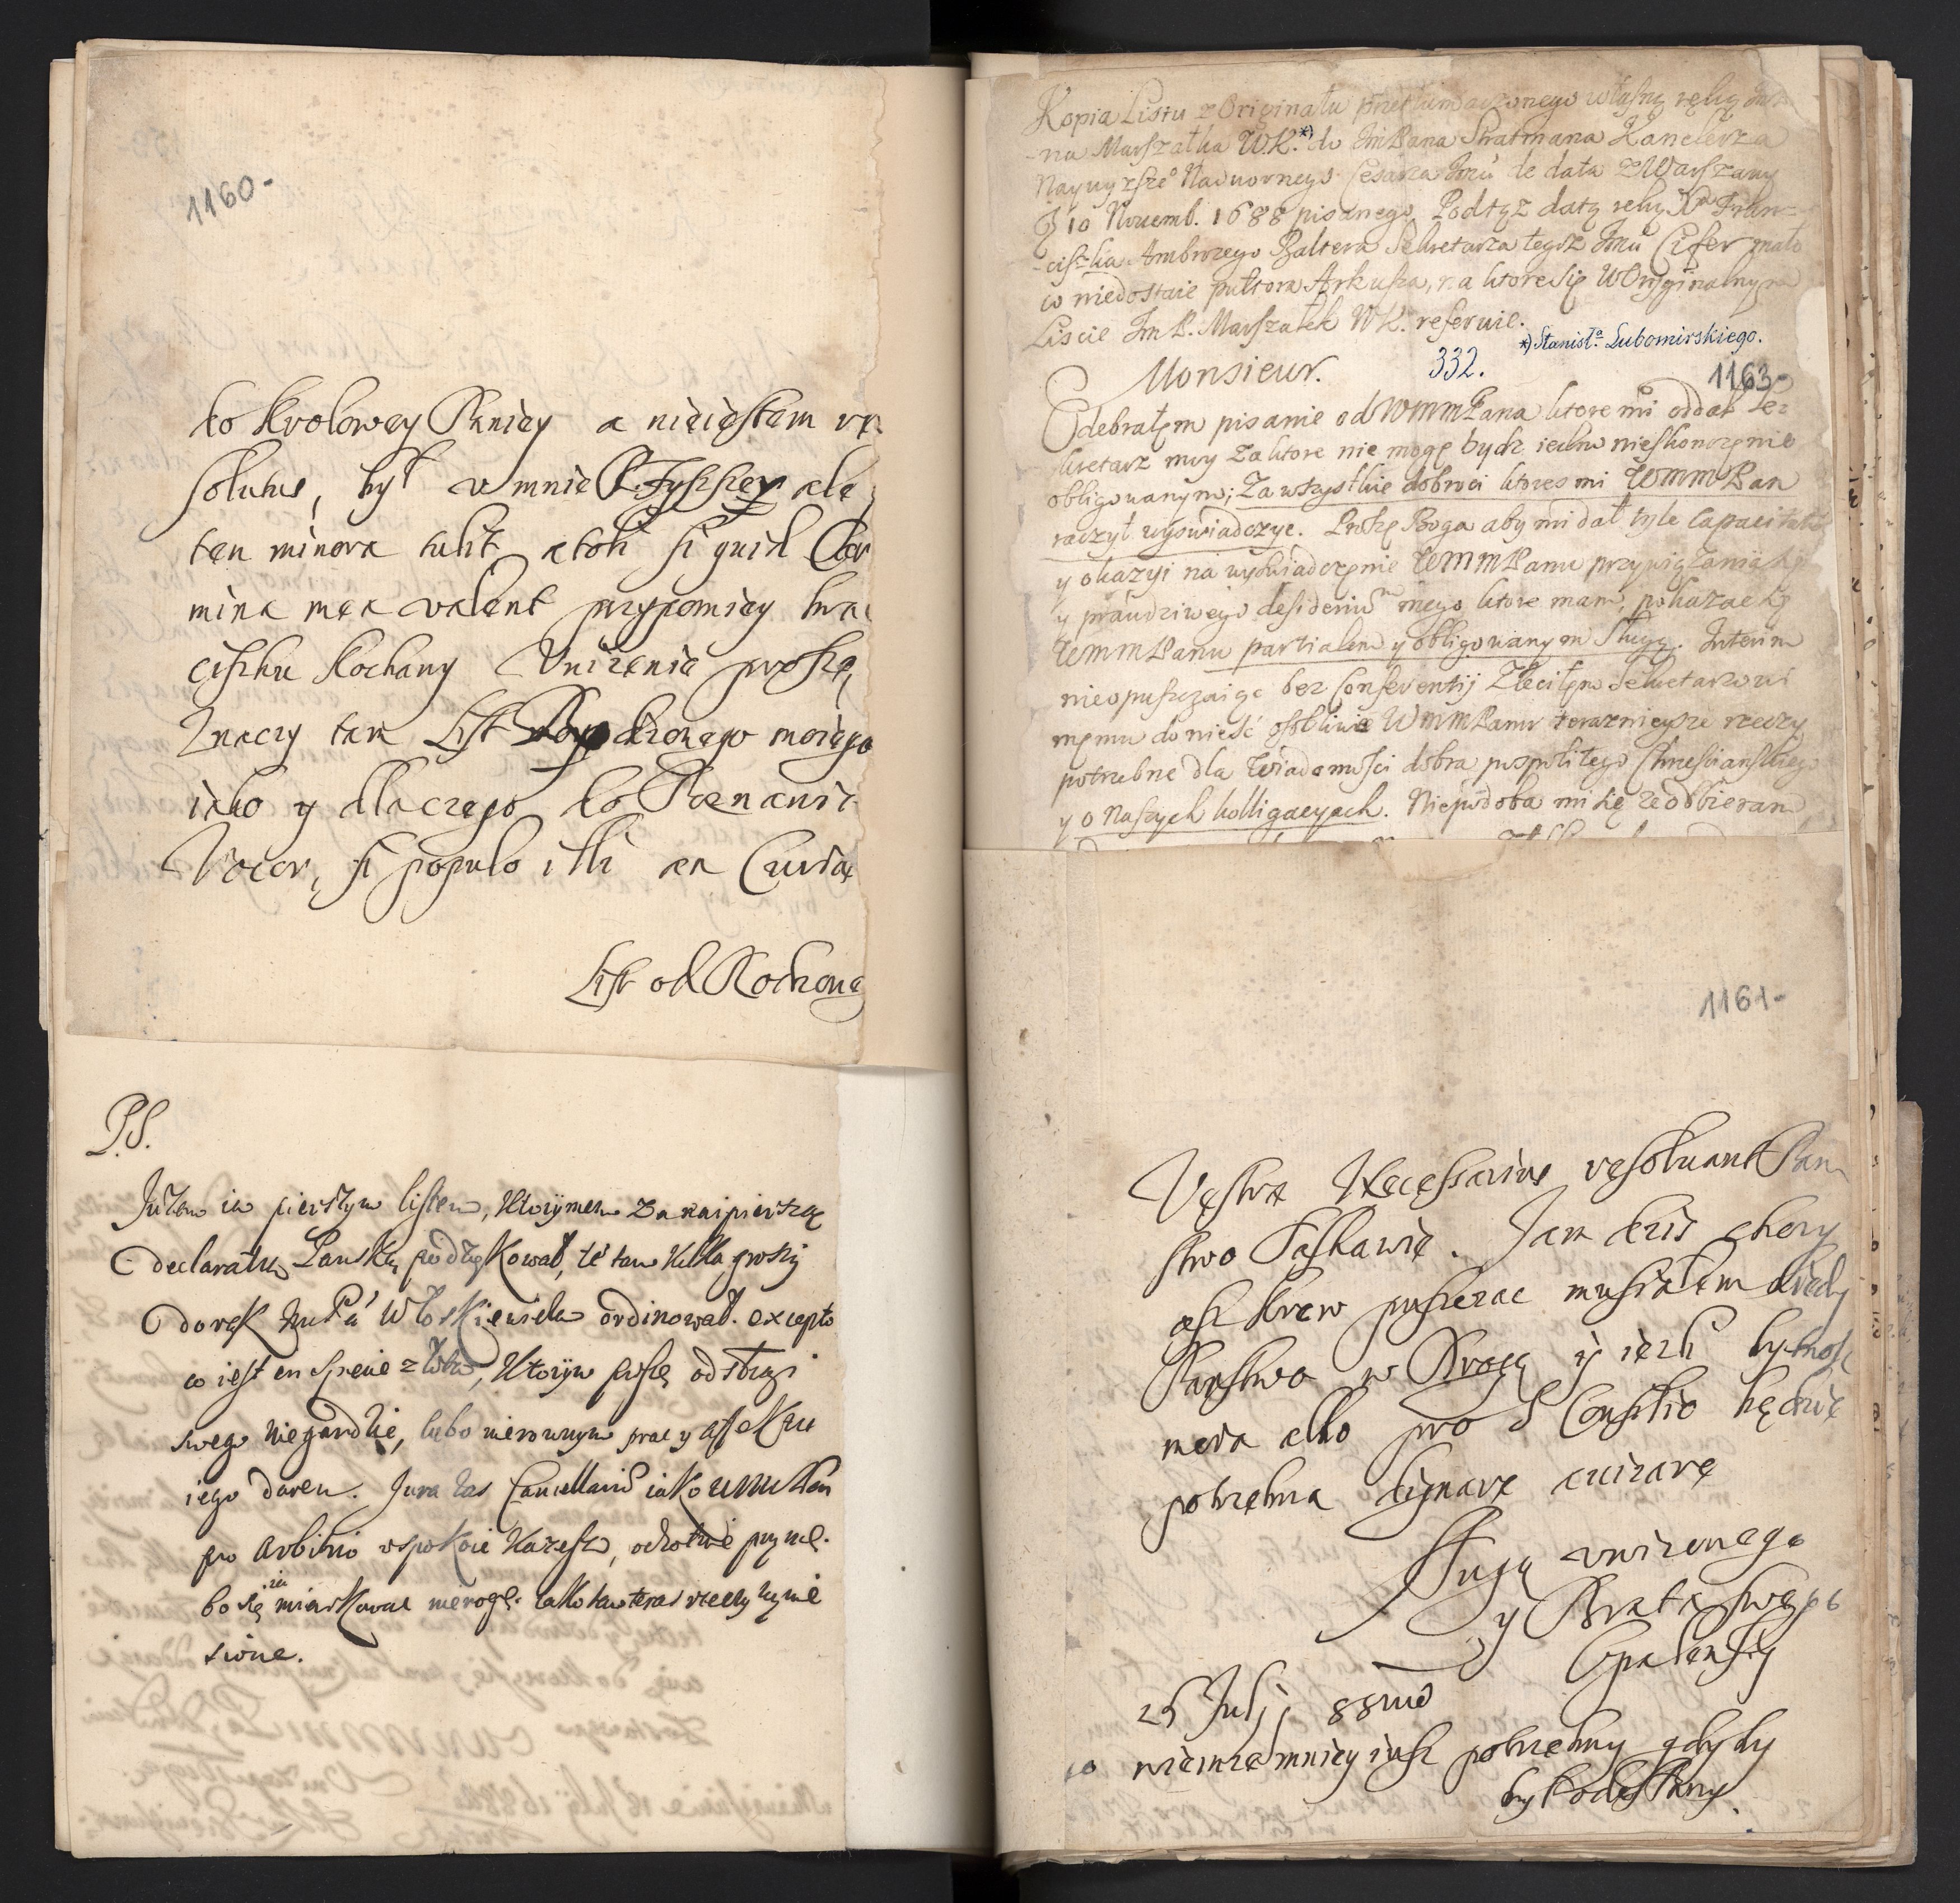 1160-
do krolowey Paniey a nieiestem re
solutus, był u mnie P. Fyszer ale
ten minora tulit a toli si quid Car
mina mea valent przypomiey bra
ciszku kochany Unizenie proszę,
Znaczy tam List kochanego moiego
iako y dlaczego do Poznania
Vocor, si populo illi ac Curiae
List od Kochane
P.S.
w pierszym listem, ktorymem za naipierszą
declaratią Pańską podziękował, że tam kilka
ordinował. excepto
co iest en speme z łobu, ktorym proszę od sługi
swego niegardzić, lubo nierownym prac y affektu
iego darem. Jura zas Cancellariae iako
pro arbitrio uspokoić każesz, ochotnie przyimę.
bo się miarkować niemogę. iako tam teraz rzeczy
sione.
Kopia Listu z Originału przetłumaczonego własną ręką Jm
-na Marszałka W.K.*) do ImPana Stratmana Kanclerza
Naywyższe° Nadwornego Cesarza Jmci de data z Warszawy
10 Novemb. 1688 pisanego. Podtąż datą ręką Xa Fran=
-ciszka Ambrozego Baltera Sekretarza tegoż Jmci Cifer mało
co niedostaie pułtora Arkusza, na ktore się w Oryginalnym
Liscie Jm P. Marszałek WK. referuie.
*) Stanisła. Lubomirskiego.
Monsieur.
332.
1163-
Odebrałem pisanie od WMMPana ktore mi oddał Se=
kretarz moy za ktore nie mogę bydz iedno nieskonczenie
obligowanym; za wszystkie dobroci ktores mi WMMPan
raczył wyswiadczyc. Proszę Boga aby mi dał tyle capacitatis
y okazyi na wyswiadczenie WMMPanu przywiązania
y prawdziwego desiderium mego, ktore mam, pokazac się
WMMPanu partialem y obligowanym Sługą. Interim
nieopuszczaiąc bez conferentij Zlecilem Sekretarzowi
memu donieść osobliwie WMMPanu teraznieysze rzeczy
potrzebne dla Wiadomości dobra pospolitego Chrześcianskiego
y o Naszych kolligacyach. Niepodoba mi się ze odbieram
1161-
Vestrae Necessarius resolvant Pan
stwo Łaskawie. Jam dzis chory
asz krew puszczac musiałem kiedy
Panstwo w Drogę y iezli bytnosc
moia albo pro Consilio będzie
potrzebna dignare avizare
Sługę unizonego
y Brata swego
Opalensky
25 Julij 88mo
niemasz mniey iusz potrzebny gdyby
był odesłany.